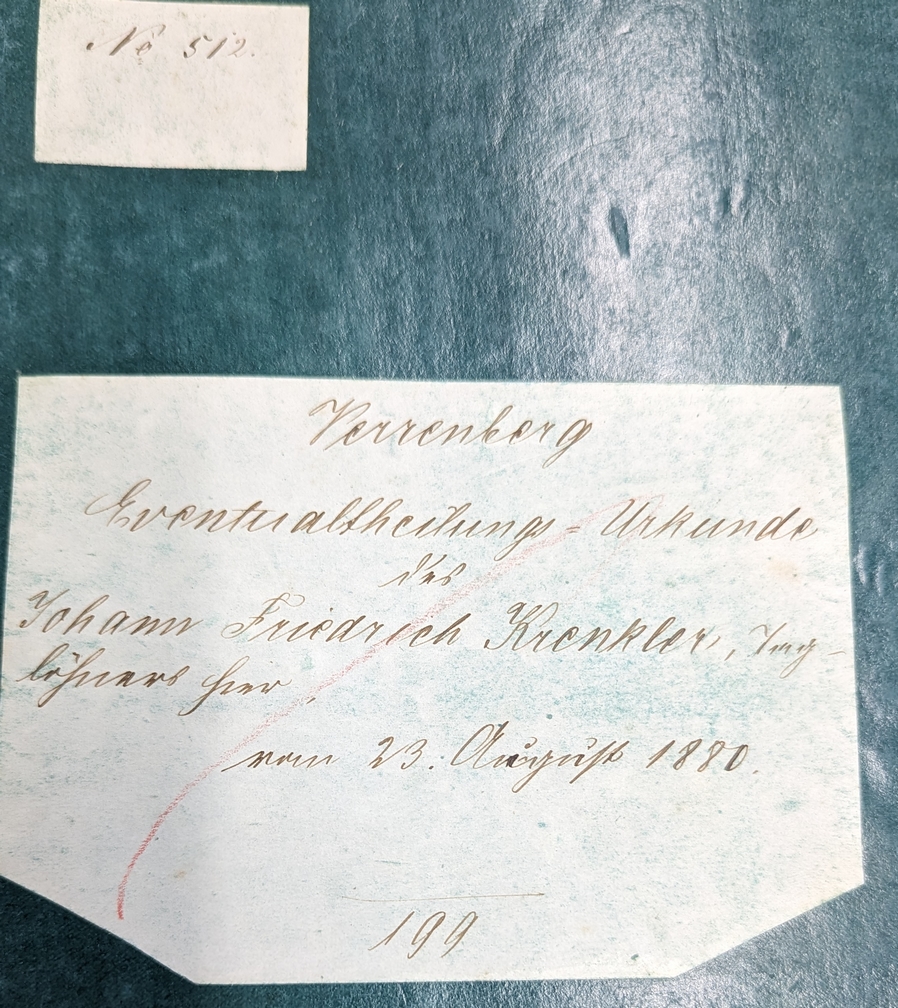 No 512.
Verrenberg
Eventualtheilungs-Urkunde
des
Johann Friedrich Krenkler, Tag-
löhners hier,
vom 23. August 1880.
199